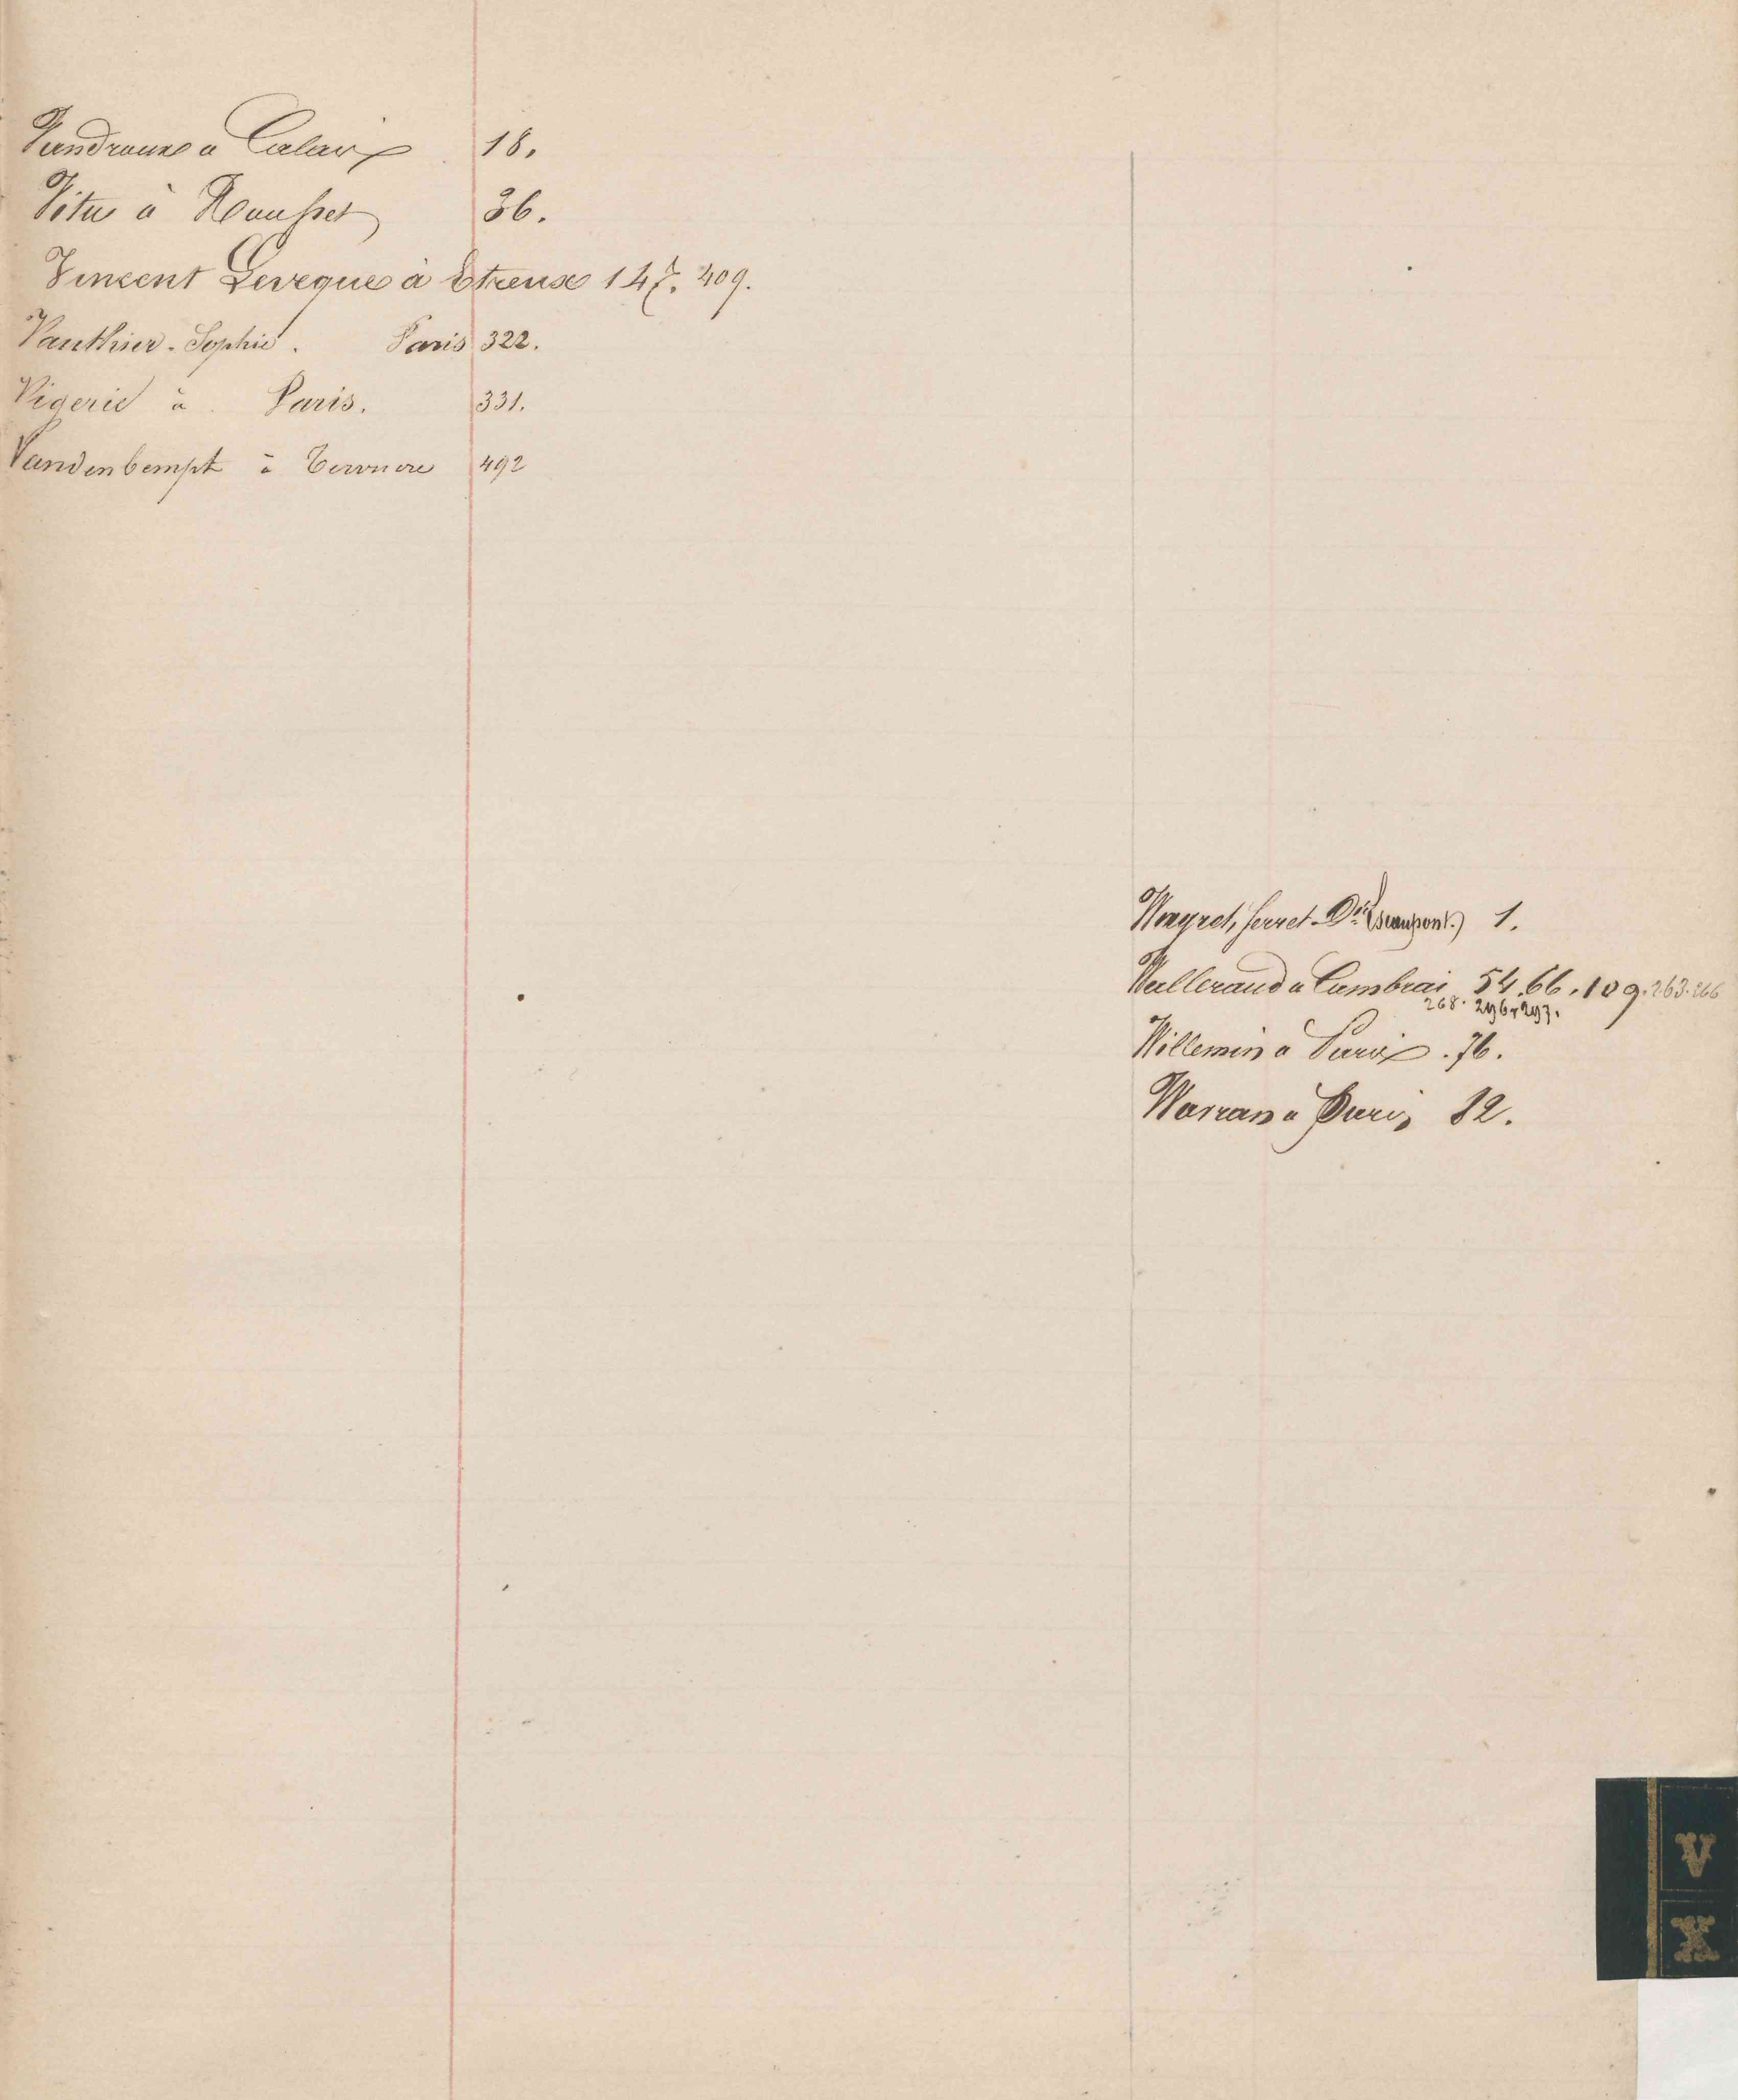 Vandroux a Calais 18.
Vitu à 36.
Vincent Leveque à Etreux 147. 409.
Vauthier. Sophie. Paris 322.
Vigerie à Paris. 331.
Vandenbempt à 492
ferret 1.
Wallerand a Cambrai 54.66.109.263.266
268. 296 297.
Willemin a Paris. 76.
a Paris 82.
V
X